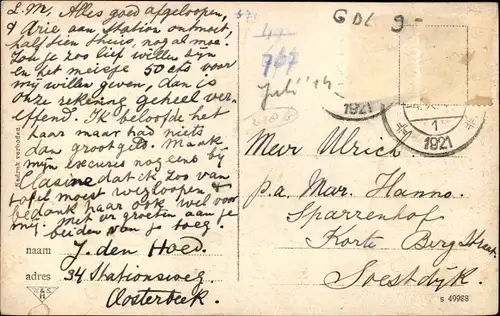 L.M, Alles goed afgeloopen,
& Arie aan station ontmoet,
half tien thuis, nog al moe.
Zou je zoo lief willen zijn
en het meisje 50 cts voor
mij willen geven, dan is
onze rekening geheel ver-
effend. Ik beloofde het
haar maar had niets
dan groot geld. Maak
mijn excuses nog eens bij
Clasine dat ik zoo van
tafel moest wegloopen &
bedank haar ook wel voor
mij. met vr groeten aan je
beiden van je toeg.
naam J. den Hoed.
adres 34 Stationsweg.
Oosterbeek.
Nadruk verboden.
GDL 9-
767
Juli
1921
1
1921
Mevr Ulrich.
p.a. Mar. Hanno.
Sparrenhof
Korte Bergstraat.
Soestdijk.
S 49988